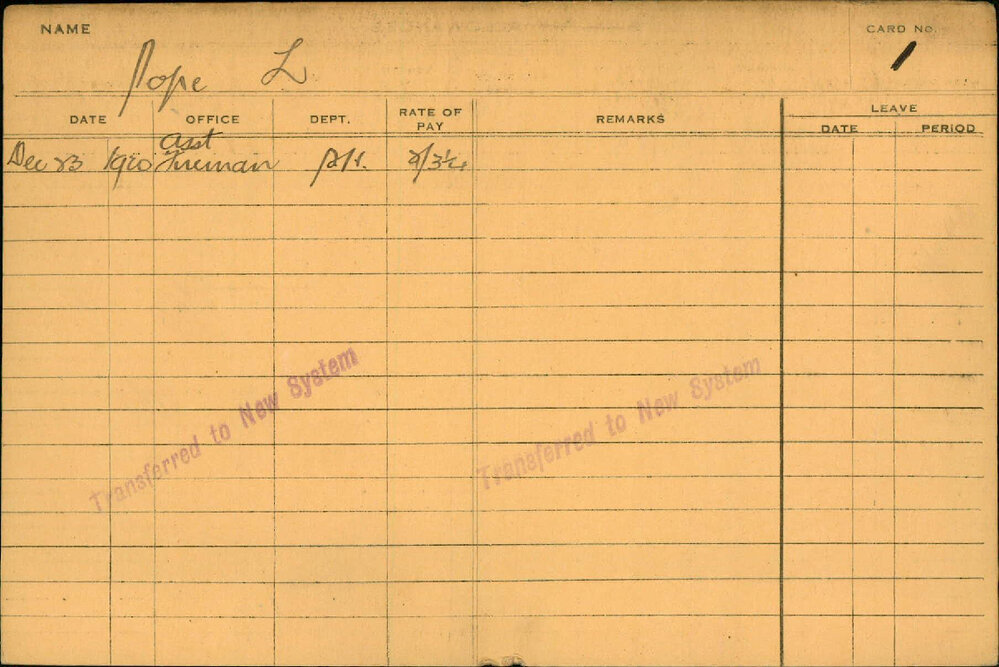 NAME
CARD No.
Pope L
1
DATE OFFICE DEPT. RATE OF PAY REMARKS LEAVE
DATE PERIOD
Asst
Dec 23 1920 Fireman
Transferred to New System
Transferred to New System